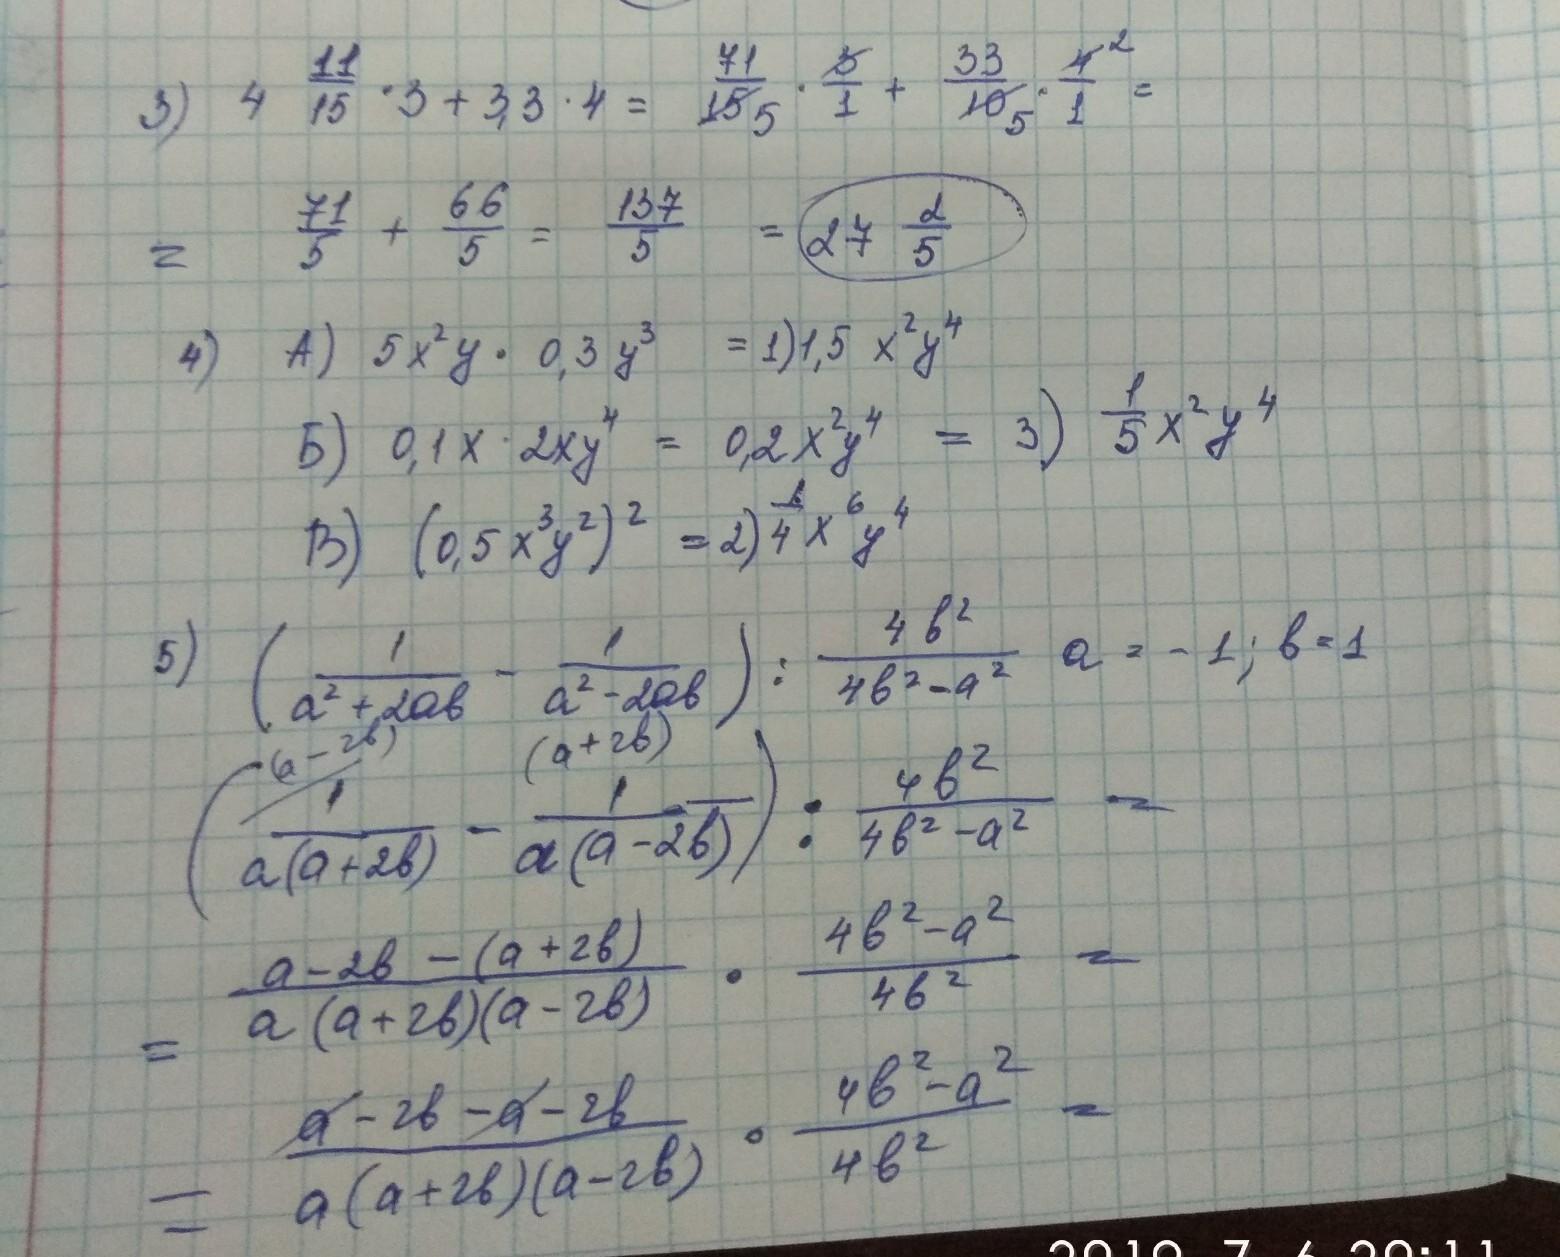 3) 4 11/15 · 3 + 3,3 · 4 = 71/15 5 · 3/1 + 33/10 5 · 4 2/1 =
= 71/5 + 66/5 = 137/5 = 27 2/5
4) А) 5x²y · 0,3y³ = 1) 1,5 x²y⁴
Б) 0,1x · 2xy⁴ = 0,2x²y⁴ = 3) 1/5 x²y⁴
В) (0,5x³y²)² = 2) 1/4 x⁶y⁴
5) (1/(a²+2ab) - 1/(a²-2ab)) : 4b²/(4b²-a²) a = -1; b = 1
(a-2b) (a+2b)
(1/(a(a+2b)) - 1/(a(a-2b))) : 4b²/(4b²-a²) =
= (a-2b-(a+2b))/(a(a+2b)(a-2b)) · (4b²-a²)/(4b²) =
= (a-2b-a-2b)/(a(a+2b)(a-2b)) · (4b²-a²)/(4b²) =